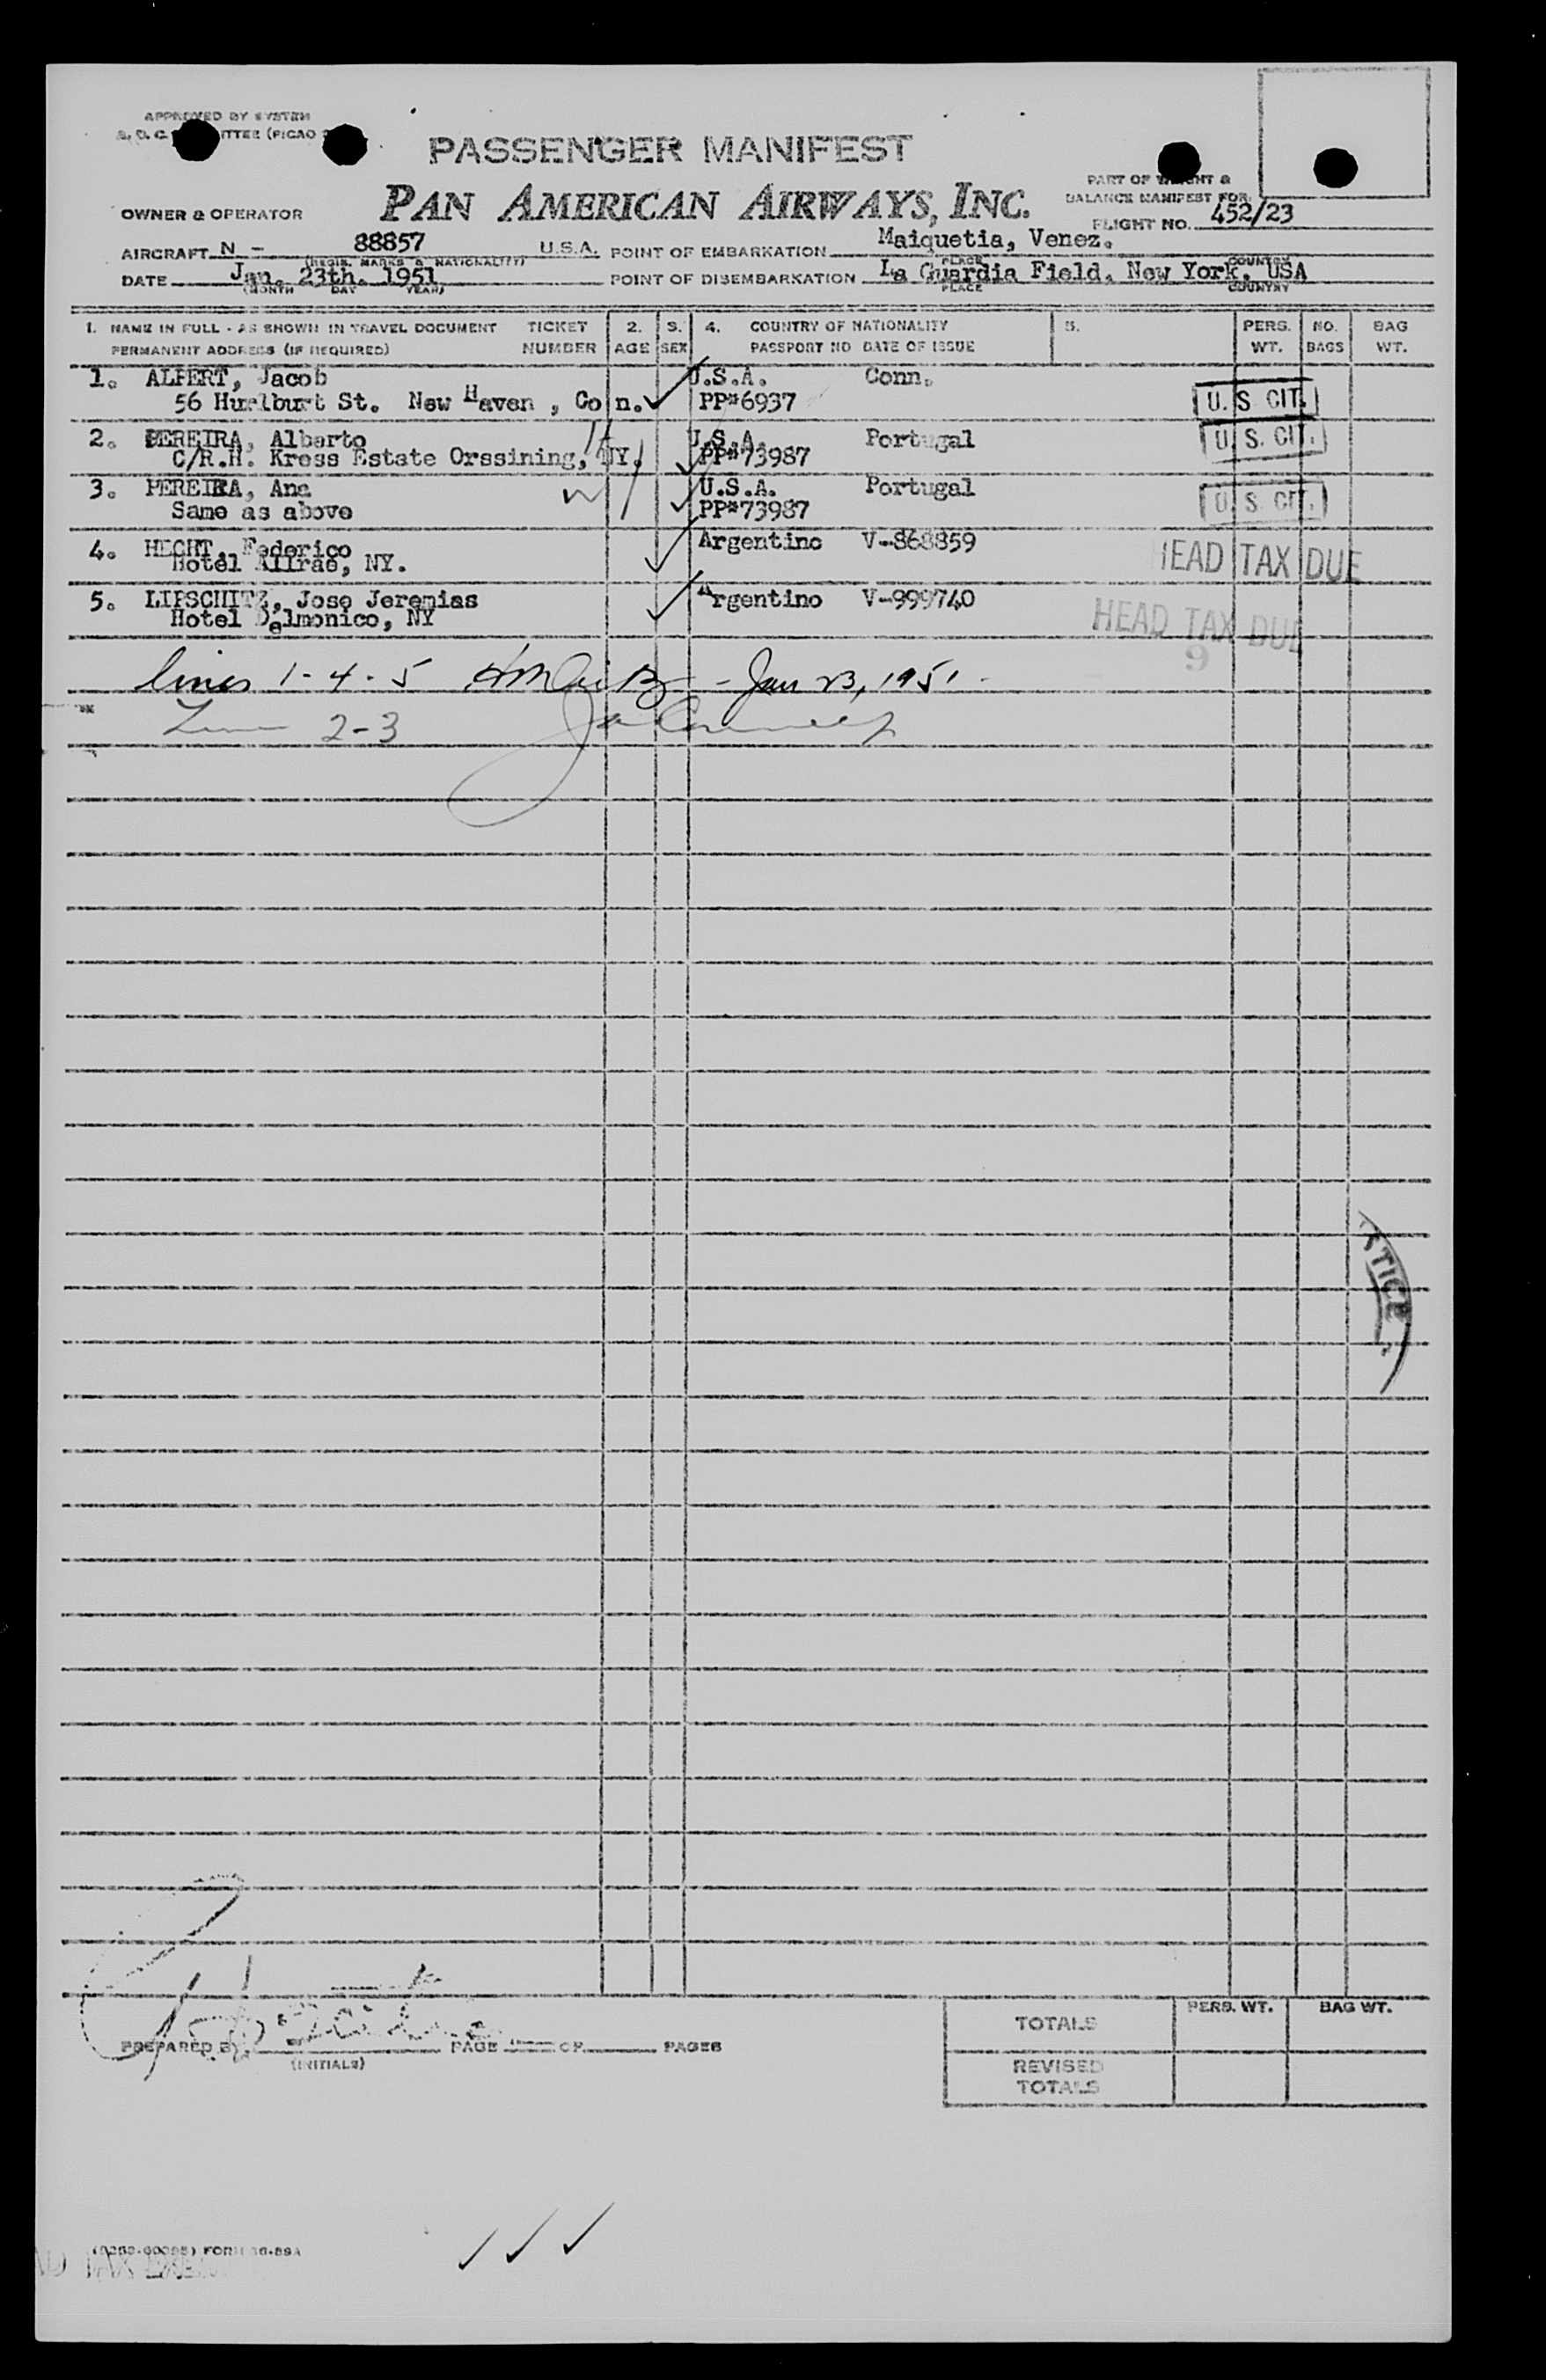 APPROVED BY SYSTEM
PASSENGER MANIFEST
PAN AMERICAN AIRWAYS, INC.
PART OF WEIGHT &
BALANCE MANIFEST FOR
FLIGHT NO. 452/23
OWNER & OPERATOR
AIRCRAFT N - 88857 U.S.A. POINT OF EMBARKATION Maiquetia, Venez.
(REGIS. MARKS & NATIONALITY) PLACE COUNTRY
DATE Jan. 23th. 1951 POINT OF DISEMBARKATION La Guardia Field, New York, USA
(MONTH DAY YEAR) PLACE COUNTRY
1. NAME IN FULL - AS SHOWN IN TRAVEL DOCUMENT TICKET 2. S. 4. COUNTRY OF NATIONALITY 5. PERS. NO. BAG
PERMANENT ADDRESS (IF REQUIRED) NUMBER AGE SEX PASSPORT NO DATE OF ISSUE WT. BAGS WT.
1. ALPERT, Jacob U.S.A. Conn.
56 Hurlburt St. New Haven , Co n. PP#6937 U. S CIT.
2. PEREIRA, Alberto U.S.A. Portugal U. S. CIT.
C/R.H. Kress Estate Orssining, NY. PP#73987
3. PEREIRA, Ana U.S.A. Portugal U. S. CIT.
Same as above PP#73987
4. HECHT, Federico Argentino V-868859 HEAD TAX DUE
Hotel Allrae, NY.
5. LIPSCHITZ, Jose Jeremias Argentino V-999740 HEAD TAX DUE
Hotel Delmonico, NY
9
lines 1-4-5 Jan 23, 1951.
2-3
STICE
PREPARED BY PAGE OF PAGES
(INITIALS)
TOTALS PERS. WT. BAG WT.
REVISED
TOTALS
FORM